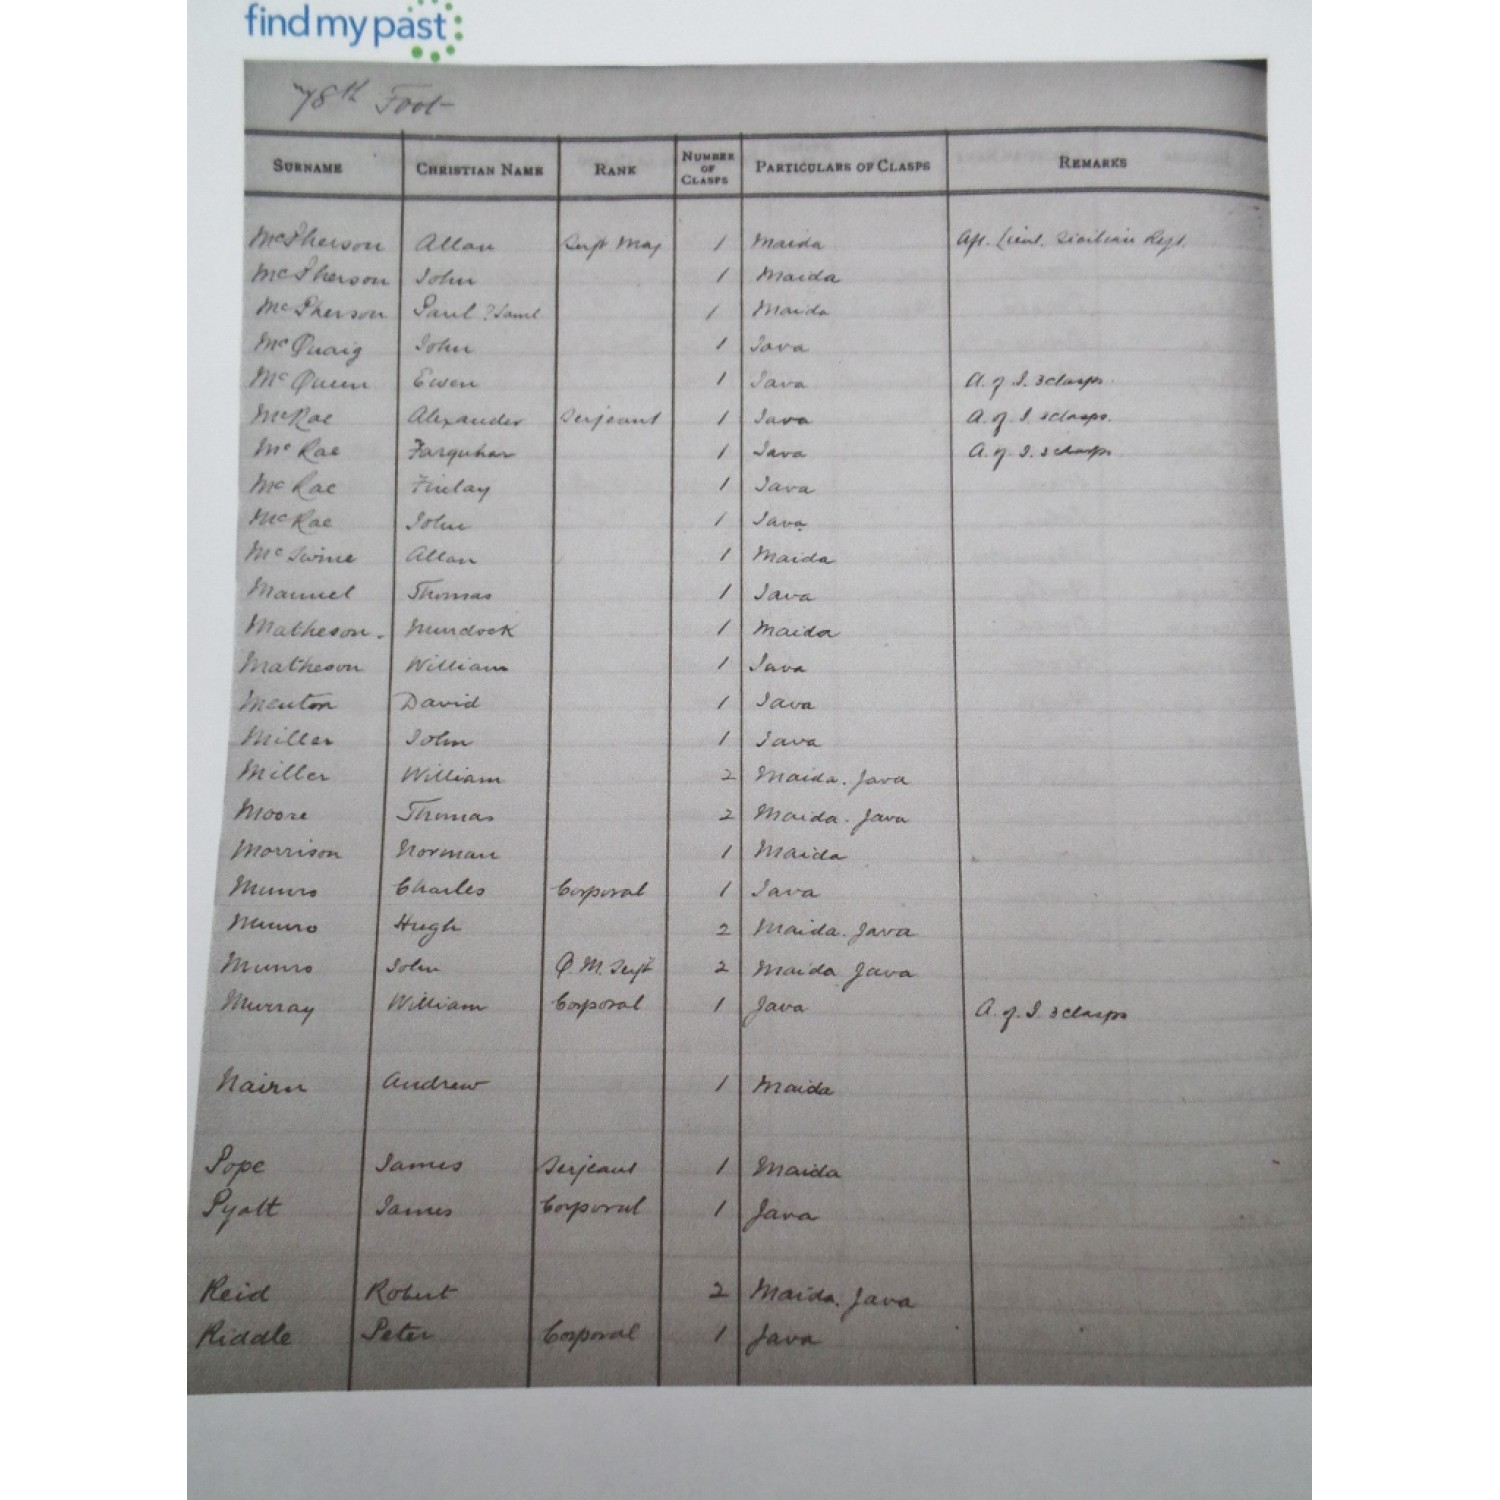 findmypast
78th Foot
SURNAME CHRISTIAN NAME RANK NUMBER OF CLASPS PARTICULARS OF CLASPS REMARKS
McPherson Allan Serjt Maj 1 Maida Lieut. Sicilian Regt.
McPherson John 1 Maida
McPherson Paul ? Saml 1 Maida
McQuaig John 1 Java
McQueen Ewen 1 Java A. of I. 3 clasps.
McRae Alexander Serjeant 1 Java A. of I. clasps.
McRae Farquhar 1 Java A. of I. 3 clasps
McRae Finlay 1 Java
McRae John 1 Java
McSwine Allan 1 Maida
Manuel Thomas 1 Java
Matheson. Murdock 1 Maida
Matheson William 1 Java
Menton David 1 Java
Miller John 1 Java
Miller William 2 Maida. Java
Moore Thomas 2 Maida. Java
Morrison Norman 1 Maida
Munro Charles Corporal 1 Java
Munro Hugh 2 Maida. Java
Munro John Q.M. Serjt 2 Maida Java
Murray William Corporal 1 Java A. of I. 3 clasps
Nairn Andrew 1 Maida
Pope James Serjeant 1 Maida
Pyatt James Corporal 1 Java
Reid Robert 2 Maida. Java
Riddle Peter Corporal 1 Java